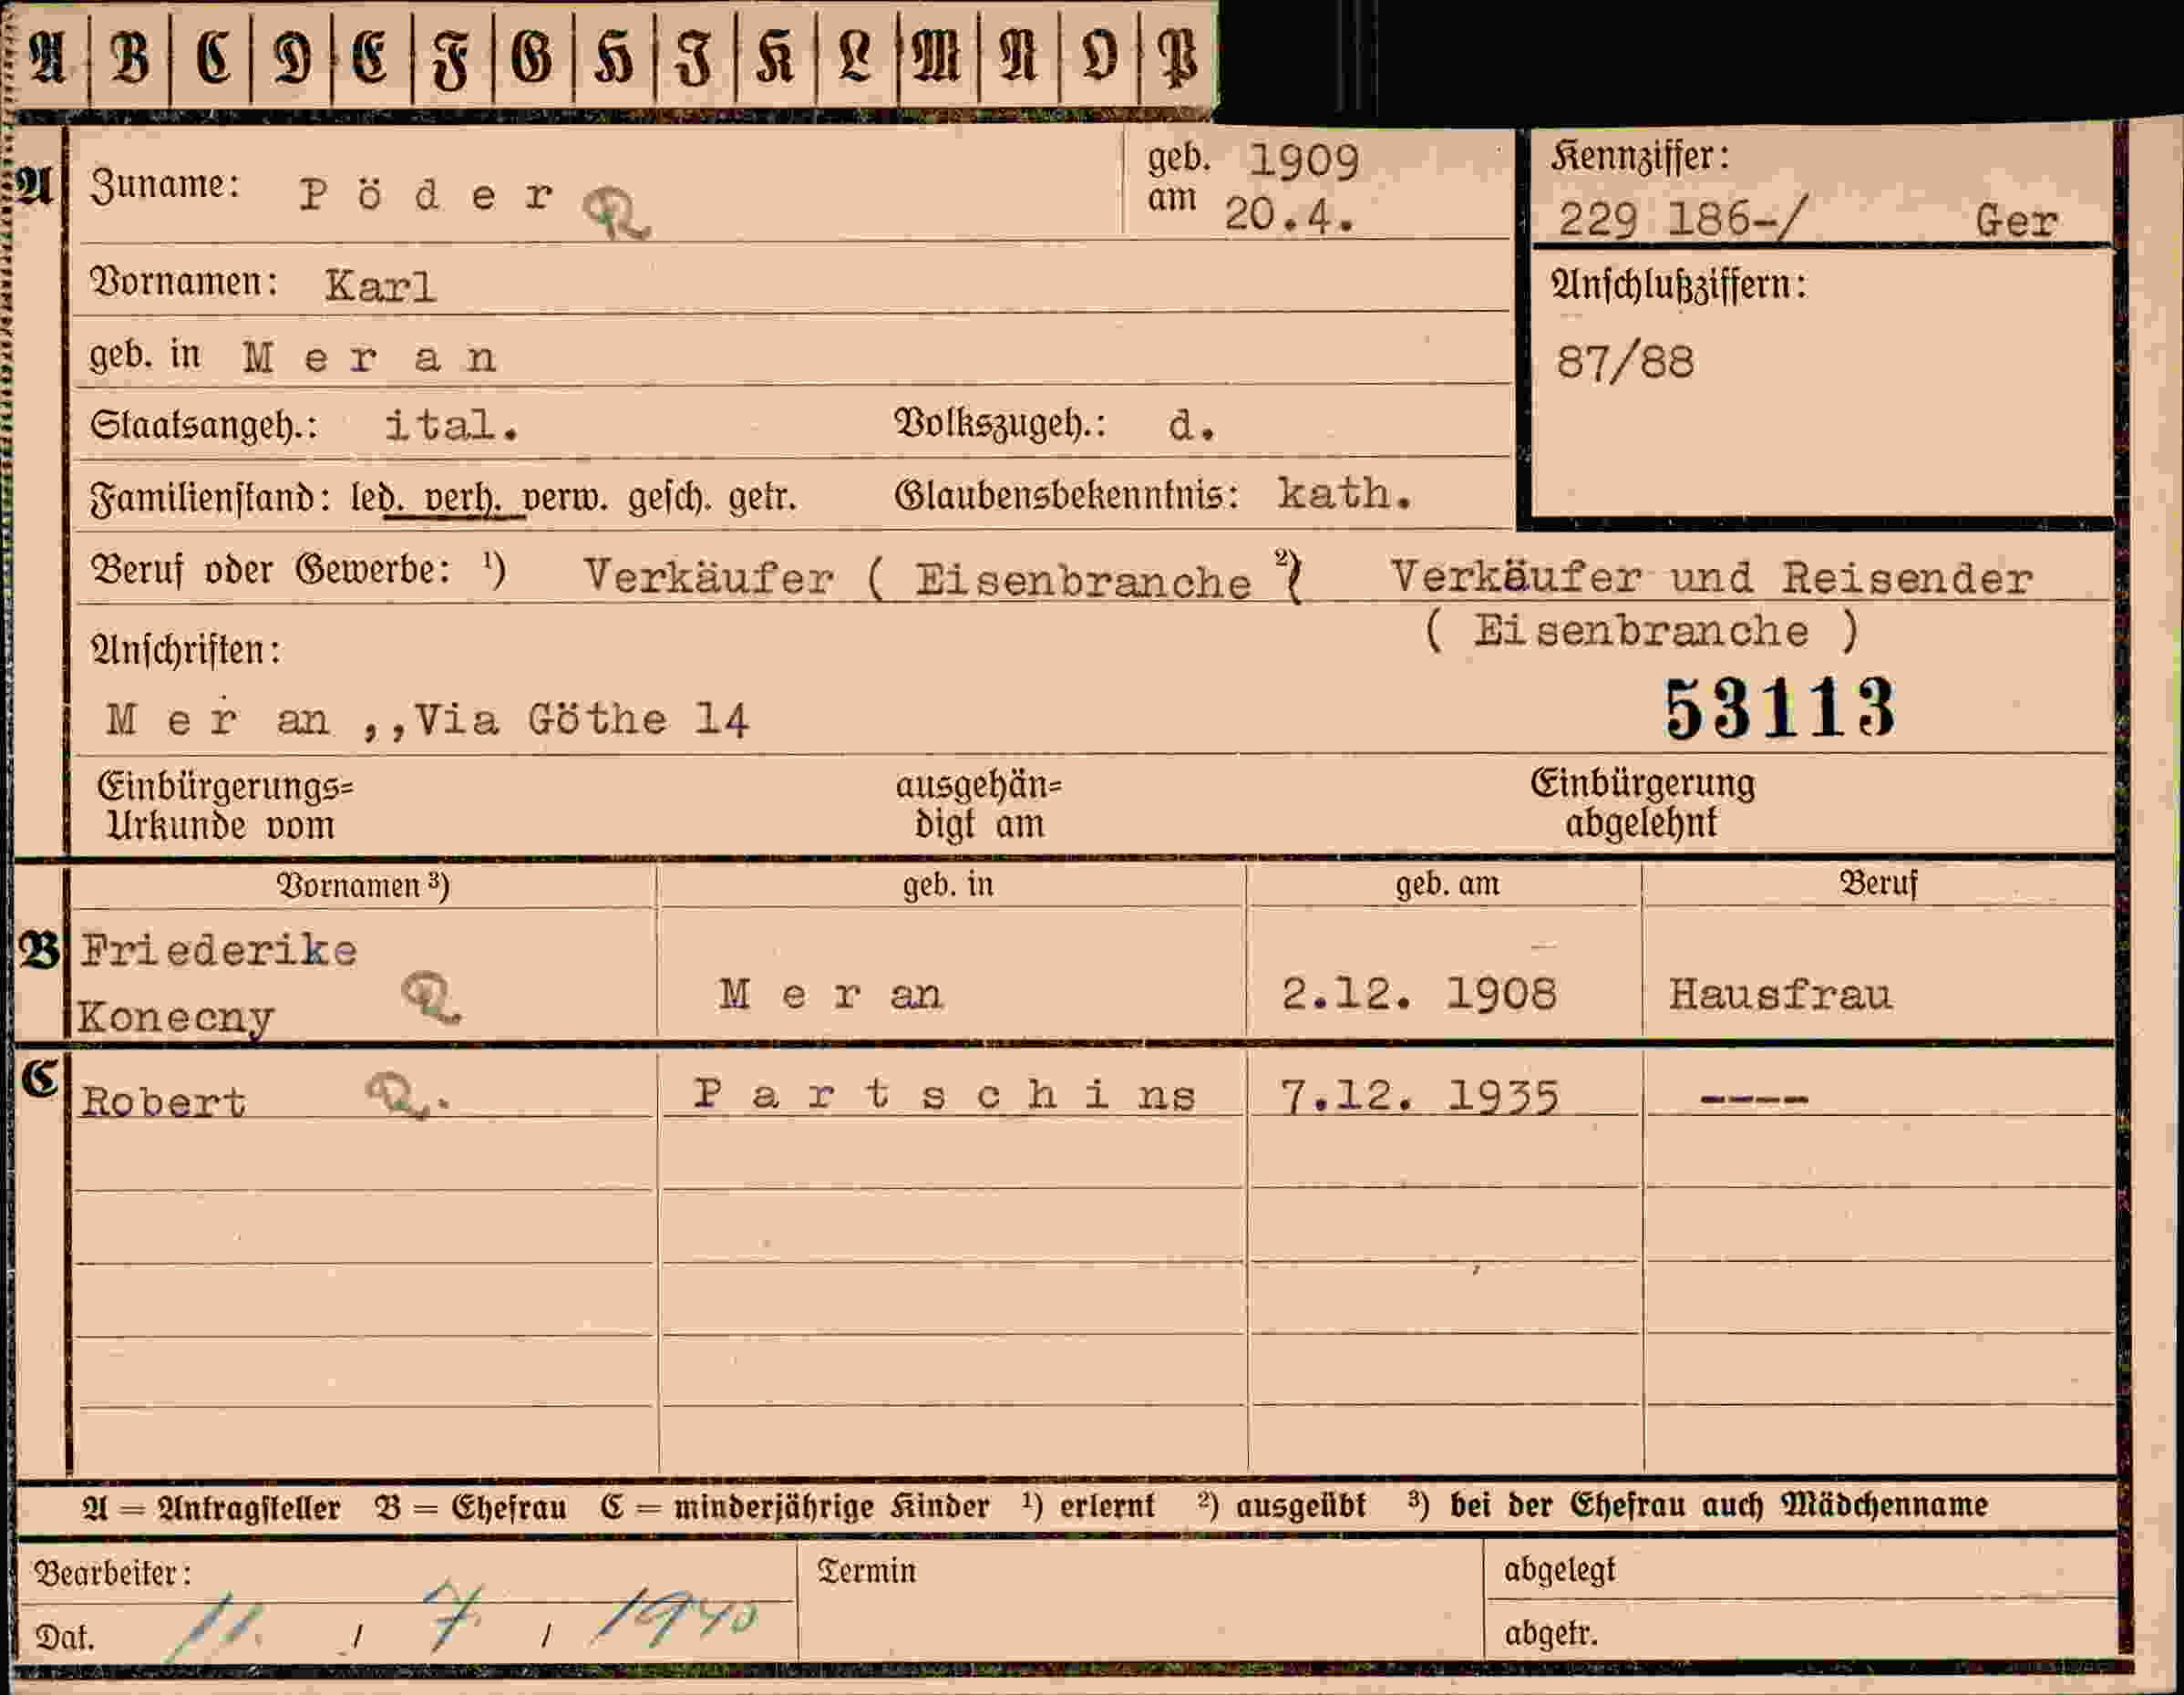 A B C D E F G H I K L M N O P
A Zuname: Pöder R geb. am 1909 20.4. Kennziffer: 229 186-/ Ger
Vornamen: Karl Anschlußziffern:
geb. in Meran 87/88
Staatsangeh.: ital. Volkszugeh.: d.
Familienstand: led. verh. verw. gesch. getr. Glaubensbekenntnis: kath.
Beruf oder Gewerbe: ¹) Verkäufer ( Eisenbranche ²) Verkäufer und Reisender
( Eisenbranche )
Anschriften:
Meran ,,Via Göthe 14 53113
Einbürgerungs= ausgehän= Einbürgerung
Urkunde vom digt am abgelehnt
Vornamen ³) geb. in geb. am Beruf
B Friederike
Konecny R. Meran 2.12. 1908 Hausfrau
C Robert R. Partschins 7.12. 1935 ----
A = Antragsteller B = Ehefrau C = minderjährige Kinder ¹) erlernt ²) ausgeübt ³) bei der Ehefrau auch Mädchenname
Bearbeiter: Termin abgelegt
Dat. 11. / 7 / 1940 abgetr.